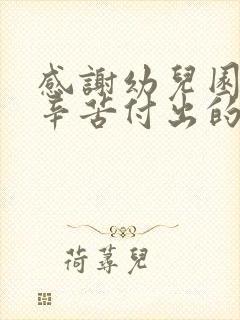 感謝幼兒園
辛苦付出的
荷蕁兒